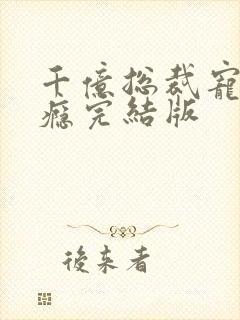 千億總裁寵
癮完結版
後來者